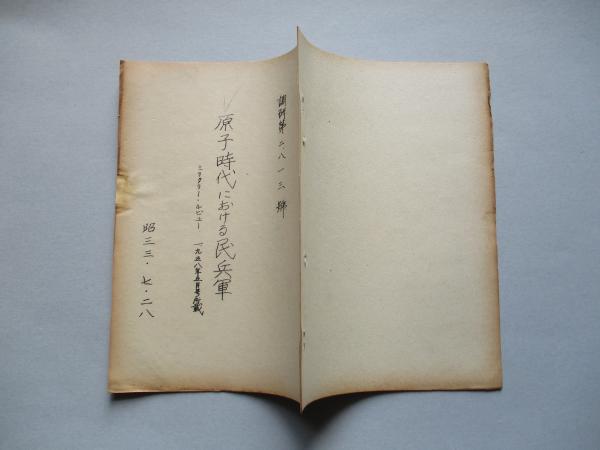 調研第二八一三號
原子時代における民兵軍
ミリタリー・レビュー 一九五八年五月号所載
昭三三・七・二八